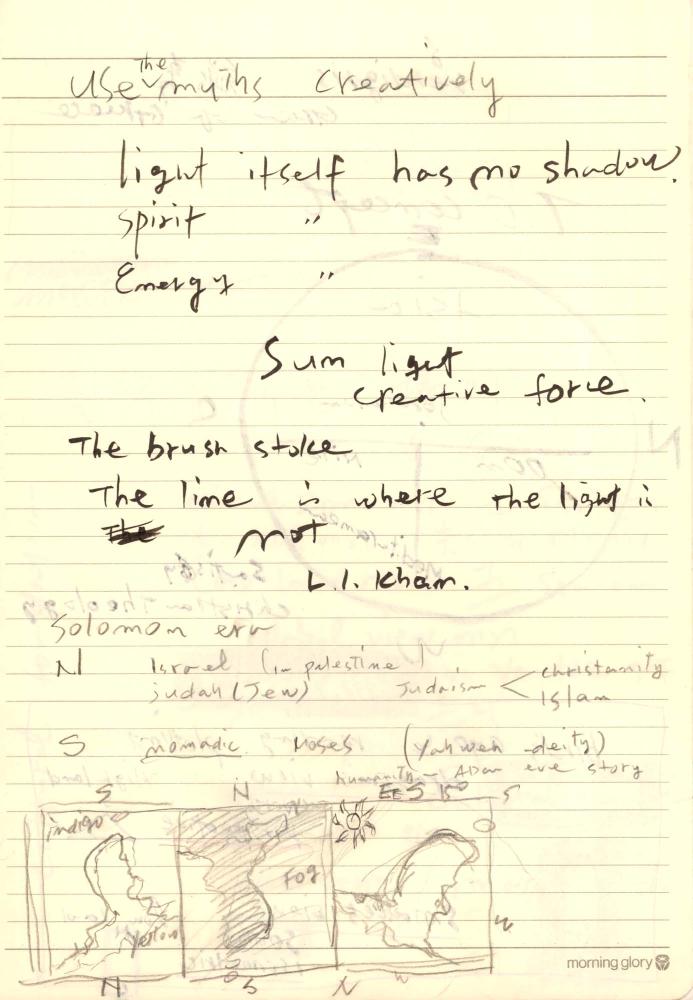 Use The myths creatively
light itself has no shadow.
spirit "
Energy "
Sun light
creative force.
The brush stoke
The line is where the light is
The not
L.I. Khan.
Solomon era
N Israel (in palestine)
judah (Jew) Judaism < christanity
Islam
S nomadic Moses (Yahweh deity)
humanity - Adam eve story
S N S
indigo
Fog
yellow
W
N S N W
morning glory